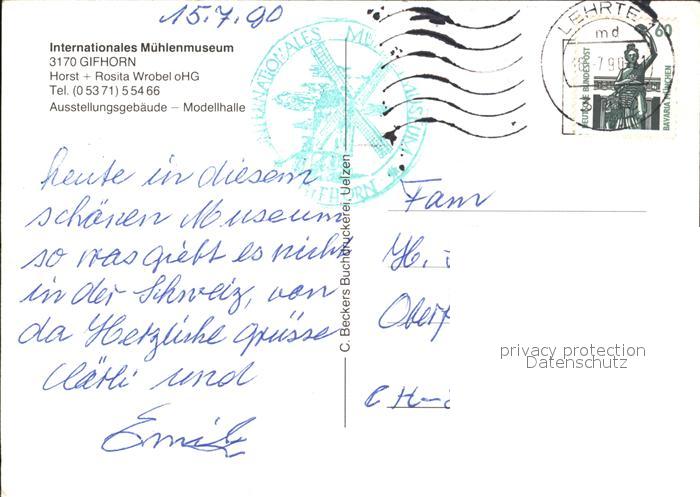 15.7.90
Internationales Mühlenmuseum
3170 GIFHORN
Horst + Rosita Wrobel oHG
Tel. (0 53 71) 5 54 66
Ausstellungsgebäude – Modellhalle
INTERNATIONALES MÜHLENMUSEUM
GIFHORN
LEHRTE 1
md
-7.90
60
DEUTSCHE BUNDESPOST
BAVARIA MÜNCHEN
heute in diesem
schönen Museum
so was giebt es nicht
in der Schweiz, von
da Herzliche grüsse
Clärli und
Emil
C. Beckers Buchdruckerei, Uelzen
Fam
H.
Ober
CH-
privacy protection
Datenschutz